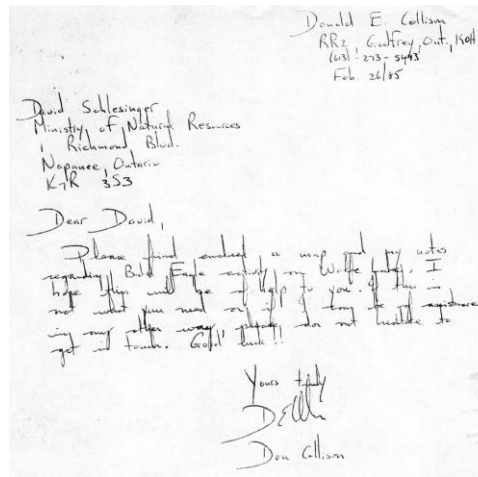 Donald E. Collison
RR2 Godfrey, Ont., K0H
(613)-273-5493
Feb. 26/85
David Schlesinger
Ministry of Natural Resources
1 Richmond Blvd.
Napanee, Ontario
K7R 3S3
Dear David,
Please find enclosed a map and my notes
regarding Bald Eagle activity on Wolfe I
hope this will be of help to you. If this is
not what you need or if I may be of assistance
in any other way please do not hesitate to
get in touch. Good luck!!
Yours truly
Don Collison